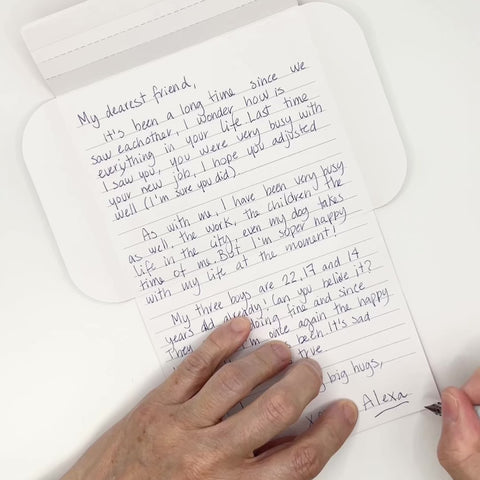 My dearest friend,
It's been a long time since we
saw eachother, I wonder how is
everything in your life. Last time
I saw you, you were very busy with
your new job, I hope you adjusted
well (I'm sure you did).
As with me, I have been very busy
as well, the work, the children, the
life in the city, even my dog takes
time of me. But I'm super happy
with my life at the moment!
My three boys are 22, 17 and 14
years old already! Can you belive it?
They doing fine and since
I'm once again the happy
been. It's sad
true
big hugs,
Alexa